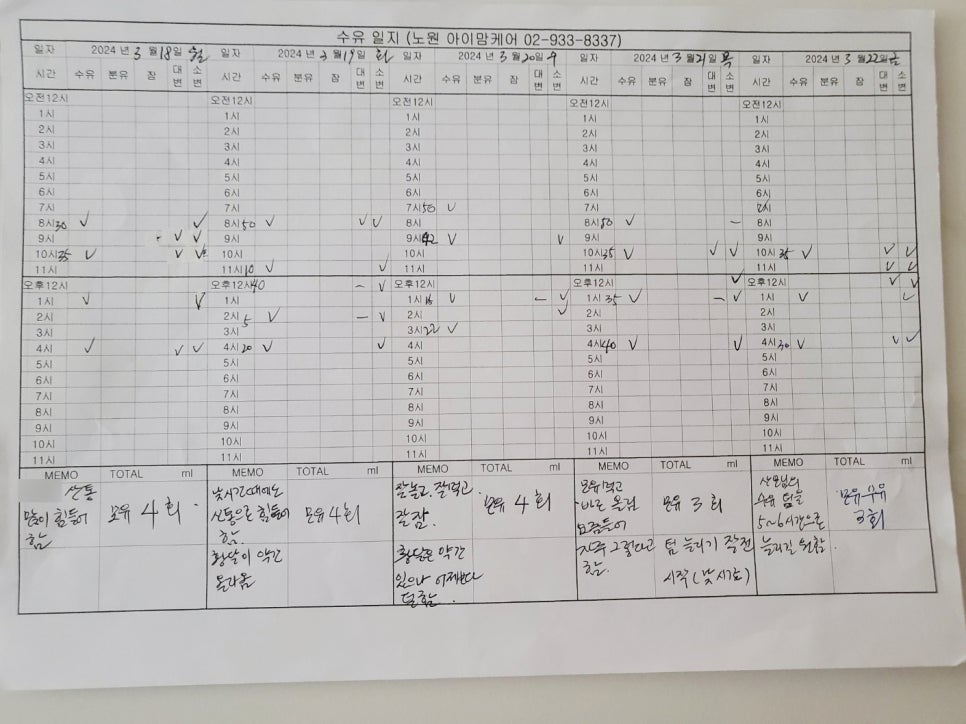 수유 일지 (노원 아이맘케어 02-933-8337)
일자 2024 년 3 월 18 일 월 일자 2024 년 3 월 19 일 화 일자 2024 년 3 월 20 일 수 일자 2024 년 3 월 21 일 목 일자 2024 년 3 월 22 일 금
시간 수유 분유 잠 대변 소변 시간 수유 분유 잠 대변 소변 시간 수유 분유 잠 대변 소변 시간 수유 분유 잠 대변 소변 시간 수유 분유 잠 대변 소변
오전12시 오전12시 오전12시 오전12시 오전12시
1시 1시 1시 1시 1시
2시 2시 2시 2시 2시
3시 3시 3시 3시 3시
4시 4시 4시 4시 4시
5시 5시 5시 5시 5시
6시 6시 6시 6시 6시
7시 7시 7시50 ✓ 7시 7시
8시30 ✓ ✓ 8시50 ✓ ✓ ✓ 8시 8시50 ✓ – 8시
9시 ✓ ✓ 9시 9시42 ✓ ✓ 9시 9시
10시35 ✓ ✓ ✓ 10시 10시 10시35 ✓ ✓ ✓ 10시35 ✓ ✓ ✓
11시 11시10 ✓ ✓ 11시 11시 11시 ✓ ✓
오후12시 오후12시40 – ✓ 오후12시 오후12시 ✓ 오후12시 ✓ ✓
1시 ✓ ✓ 1시 1시16 ✓ – ✓ 1시35 ✓ – ✓ 1시 ✓ ✓
2시 2시5 ✓ – ✓ 2시 ✓ 2시 2시
3시 3시 3시22 ✓ 3시 3시
4시 ✓ ✓ ✓ 4시20 ✓ ✓ 4시 4시40 ✓ ✓ 4시30 ✓ ✓ ✓
5시 5시 5시 5시 5시
6시 6시 6시 6시 6시
7시 7시 7시 7시 7시
8시 8시 8시 8시 8시
9시 9시 9시 9시 9시
10시 10시 10시 10시 10시
11시 11시 11시 11시 11시
MEMO TOTAL ml MEMO TOTAL ml MEMO TOTAL ml MEMO TOTAL ml MEMO TOTAL ml
산통
많이 힘들어
함
모유 4회
낮시간대에도
산통으로 힘들어
함.
모유 4회
황달이 약간
올라옴
잘놀고. 잘먹고
잘잠.
모유 4회
황달은 약간
있으나 어제보다
덜함.
모유먹고
바로 옹김
요즘들어
모유 3회
자주 그렇다고
함.
텀 늘리기 작전
시작 (낮시간)
산모님의
수유 텀을
5~6시간으로
늘리길 원함.
모유수유
3회